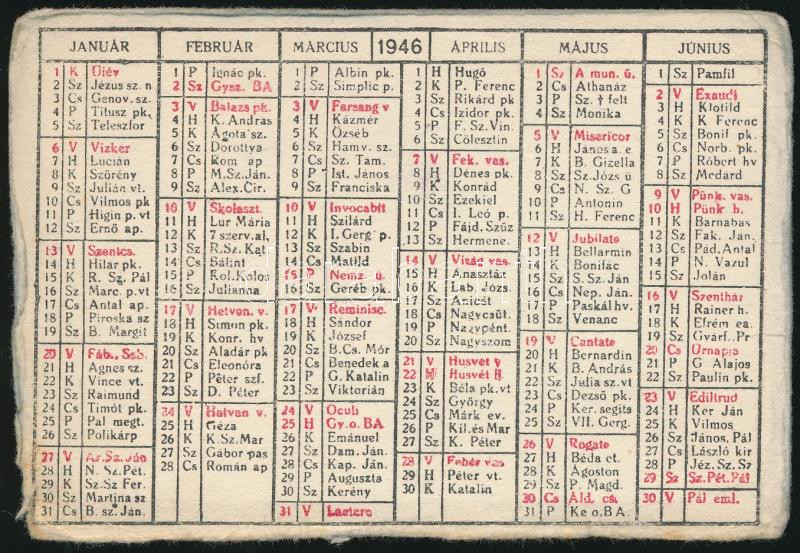 JANUÁR
1 K Újév
2 Sz Jézus sz. n
3 Cs Genov. sz.
4 P Titusz pk.
5 Sz Teleszfor
6 V Vizker
7 H Lucián
8 K Szörény
9 Sz Julián vt.
10 Cs Vilmos pk
11 P Higin p. vt
12 Sz Ernő ap.
13 V Szentcs.
14 H Hilár pk.
15 K R. Sz. Pál
16 Sz Marc. p.vt
17 Cs Antal ap.
18 P Piroska sz
19 Sz B. Margit
20 V Fáb., Seb.
21 H Agnes sz.
22 K Vince vt.
23 Sz Raimund
24 Cs Timót pk.
25 P Pál megt.
26 Sz Polikárp
27 V Ar. Sz. Ján
28 H N. Sz. Pét.
29 K Sz. Sz Fer.
30 Sz Martina sz
31 Cs B. sz. Ján.
FEBRUÁR
1 P Ignác pk.
2 Sz Gysz. BA
3 V Balázs pk.
4 H K. András
5 K Ágota sz.
6 Sz Dorottya
7 Cs Rom ap
8 P M. Sz. Ján.
9 Sz Alex. Cir.
10 V Skolaszt.
11 H Lur Mária
12 K 7 szerv. al.
13 Sz R. Sz. Kat.
14 Cs Bálint
15 P Kol. Kolos
16 Sz Julianna
17 V Hetven. v.
18 H Simon pk.
19 K Konr. hv
20 Sz Aladár pk
21 Cs Eleonóra
22 P Péter szf.
23 Sz D. Péter
24 V Hatvan v.
25 H Géza
26 K K. Sz. Mar
27 Sz Gábor pas
28 Cs Román ap
MÁRCIUS
1 P Albin pk.
2 Sz Simplic p.
3 V Farsang v
4 H Kázmér
5 K Özséb
6 Sz Hamv. sz.
7 Cs Sz. Tam.
8 P Ist. János
9 Sz Franciska
10 V Invocabit
11 H Szilárd
12 K I. Gerg p.
13 Sz Szabin
14 Cs Matild
15 P Nemz. ü.
16 Sz Geréb pk.
17 V Reminisc.
18 H Sándor
19 K József
20 Sz B. Cs. Mór
21 Cs Benedek a
22 P G. Katalin
23 Sz Viktorián
24 V Oculi
25 H Gy. o. BA
26 K Emánuel
27 Sz Dam. Ján.
28 Cs Kap. Ján.
29 P Auguszta
30 Sz Kerény
31 V Laetere
1946
ÁPRILIS
1 H Hugó
2 K P. Ferenc
3 Sz Rikárd pk
4 Cs Izidor pk.
5 P F. Sz. Vin.
6 Sz Cölesztin
7 V Fek. vas.
8 H Dénes pk.
9 K Konrád
10 Sz Ezekiel
11 Cs I. Leó p.
12 P Fájd. Szűz
13 Sz Hermene.
14 V Virág vas.
15 H Anasztáz
16 K Lab. Józs.
17 Sz Anicét
18 Cs Nagycsüt.
19 P Nagypént.
20 Sz Nagyszom
21 V Husvét v
22 H Husvét H.
23 K Béla pk. vt
24 Sz György
25 Cs Márk ev.
26 P Kil. és Mar
27 Sz K. Péter
28 V Fehér vas
29 H Péter vt.
30 K Katalin
MÁJUS
1 Sz A mun. ü.
2 Cs Athanáz
3 P Sz. † felt
4 Sz Monika
5 V Misericor
6 H János a. e
7 K B. Gizella
8 Sz Sz. Józs ü
9 Cs N. Sz. G
10 P Antonin
11 Sz H. Ferenc
12 V Jubilate
13 H Bellarmin
14 K Bonifác
15 Sz S. Sz. Ján
16 Cs Nep. Ján.
17 P Paskál hv.
18 Sz Venanc
19 V Cantate
20 H Bernardin
21 K B. András
22 Sz Julia sz. vt
23 Cs Dezső pk.
24 P Ker. segíts
25 Sz VII. Gerg.
26 V Rogate
27 H Béda et.
28 K Ágoston
29 Sz P. Magd.
30 Cs Áld. cs.
31 P Ke o. BA.
JÚNIUS
1 Sz Pamfil
2 V Exaudi
3 H Klotild
4 K K Ferenc
5 Sz Bonif pk.
6 Cs Norb. pk.
7 P Róbert hv
8 Sz Medárd
9 V Pünk. vas.
10 H Pünk h.
11 K Barnabás
12 Sz Fak. Ján.
13 Cs Pád. Antal
14 P N. Vazul
15 Sz Jolán
16 V Szenthár
17 H Rainer h.
18 K Efrém ea.
19 Sz Gyárf.. Pr
20 Cs Úrnapja
21 P G. Alajos
22 Sz Paulin pk.
23 V Ediltrud
24 H Ker Ján
25 K Vilmos
26 Sz János, Pál
27 Cs László kir
28 P Jéz. Sz. Sz
29 Sz Sz. Pét. Pál
30 V Pál eml.